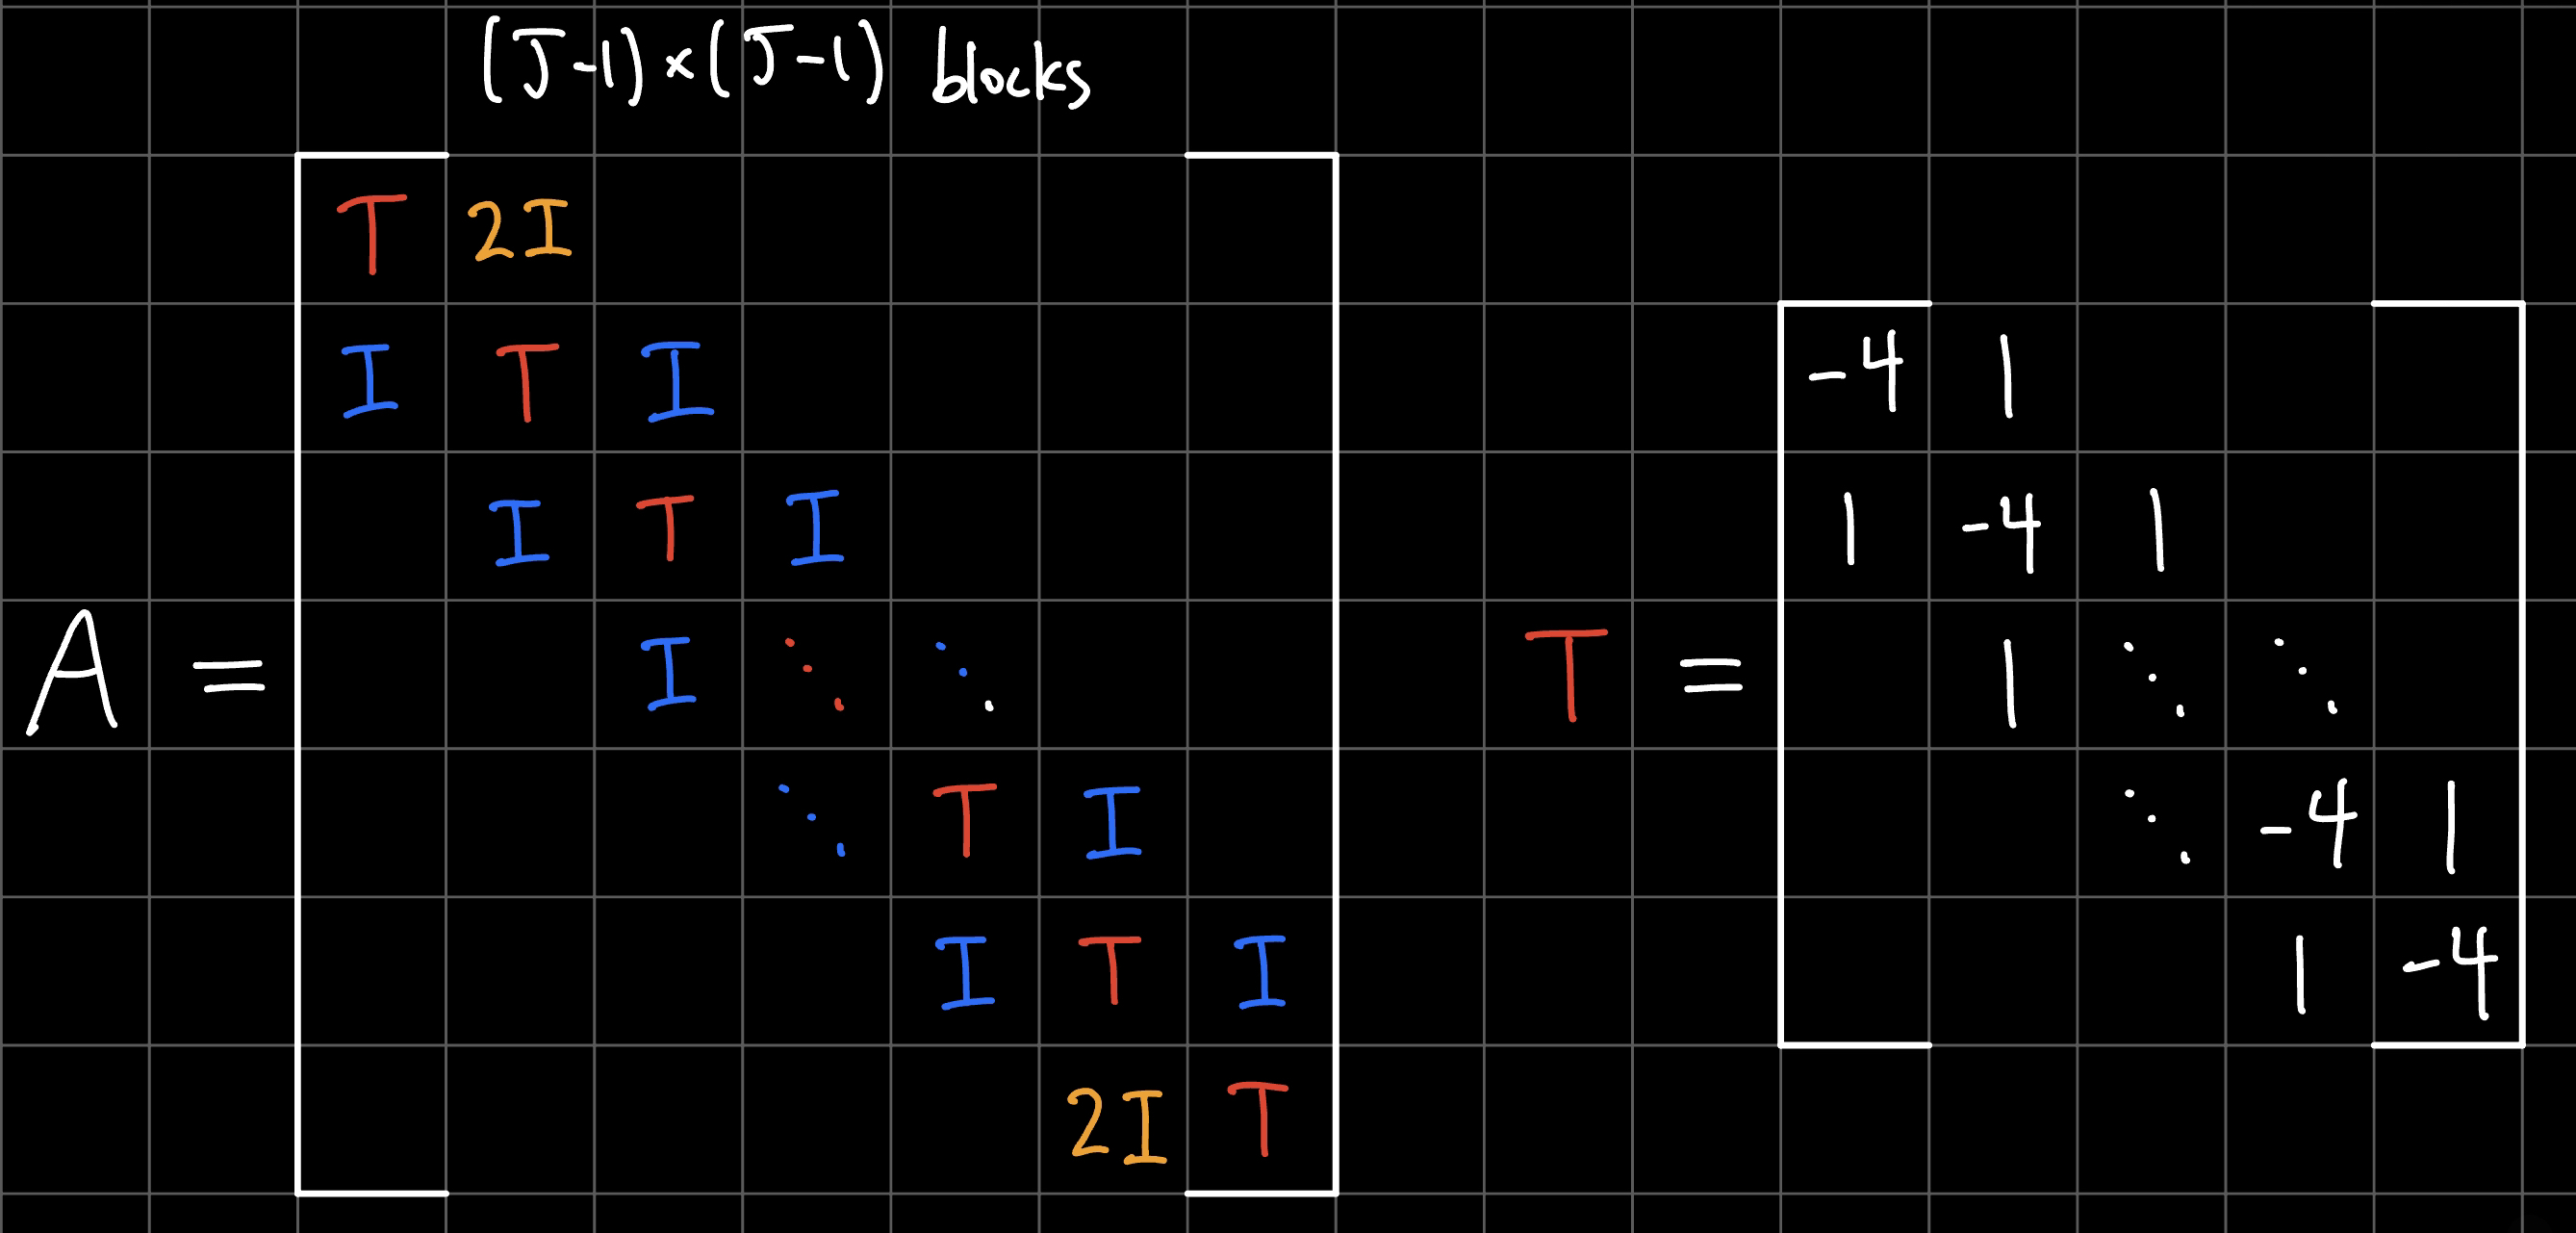 (J-1)×(J-1) blocks
T 2I
I T I
I T I
A = I ⋱ ⋱
⋱ T I
I T I
2I T
-4 1
1 -4 1
T = 1 ⋱ ⋱
⋱ -4 1
1 -4